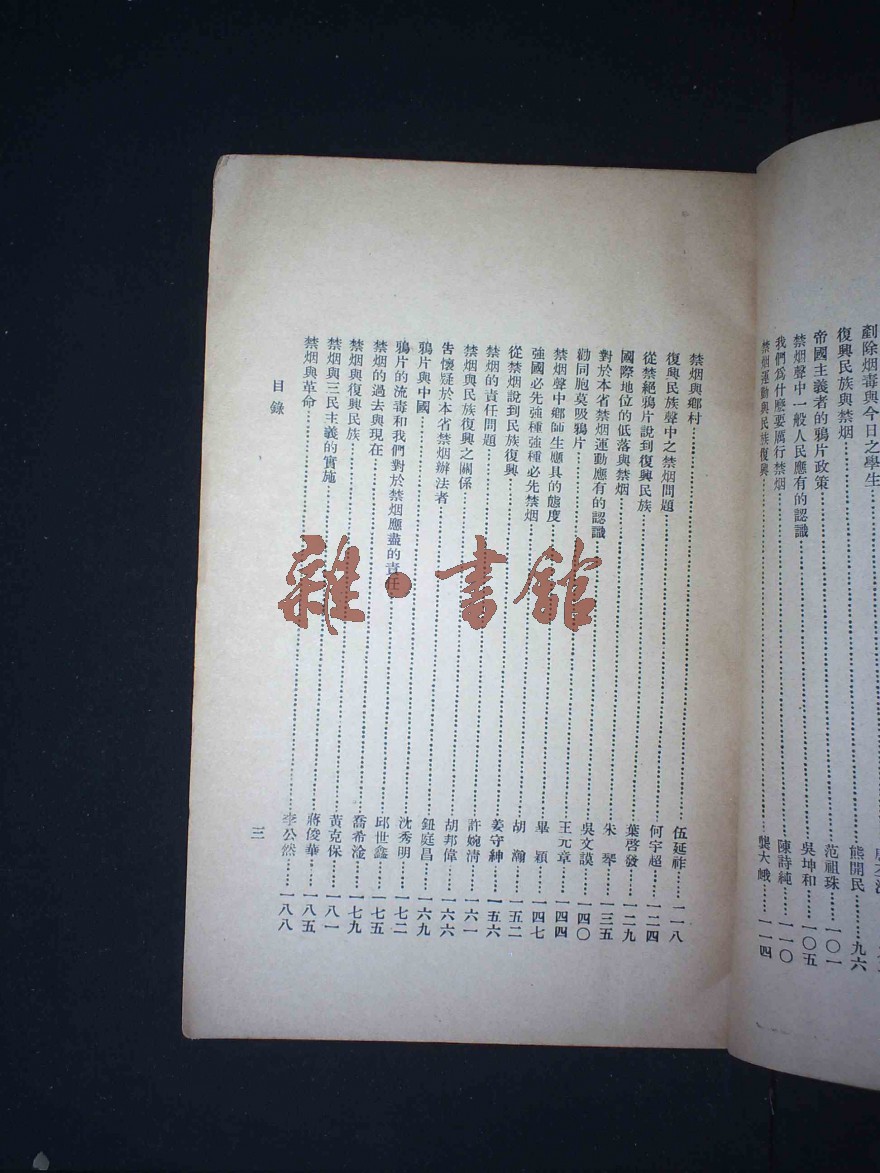 剷除烟毒與今日之學生
復興民族與禁烟……熊開民……九六
帝國主義者的鴉片政策……范祖珠……一〇一
禁烟聲中一般人民應有的認識……吳坤和……一〇五
我們爲什麼要厲行禁烟……陳詩純……一一〇
禁烟運動與民族復興……龔大峨……一一四
禁烟與鄉村……伍延祚……一一八
復興民族聲中之禁烟問題……何宇超……一二四
從禁絕鴉片說到復興民族……葉啓發……一二九
國際地位的低落與禁烟……朱 琴……一三五
對於本省禁烟運動應有的認識……吳文謨……一四〇
勸同胞莫吸鴉片……王元章……一四四
禁烟聲中鄉師生應具的態度……畢 穎……一四七
強國必先強種強種必先禁烟……胡 瀚……一五二
從禁烟說到民族復興……姜守紳……一五六
禁烟的責任問題……許婉清……一六一
禁烟與民族復興之關係……胡邦偉……一六六
告懷疑於本省禁烟辦法者……鈕庭昌……一六九
鴉片與中國……沈秀明……一七二
鴉片的流毒和我們對於禁烟應盡的責任……邱世鑫……一七五
禁烟的過去與現在……喬希淦……一七九
禁烟與復興民族……黃克保……一八一
禁烟與三民主義的實施……蔣俊華……一八五
禁烟與革命……李公然……一八八
目錄
三
雜·書館